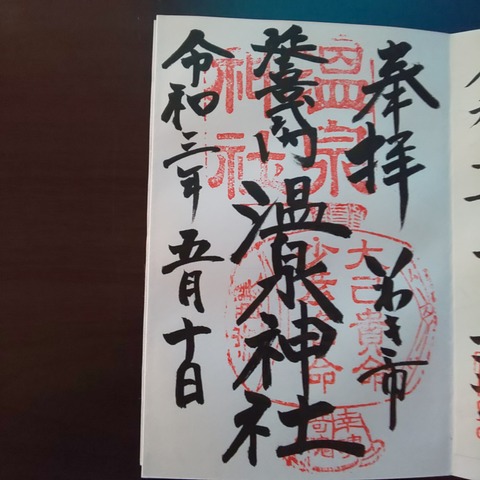 奉拝 いわき市
温泉神社
令和三年 五月十日
温泉
神社
大己貴命
少彦名命